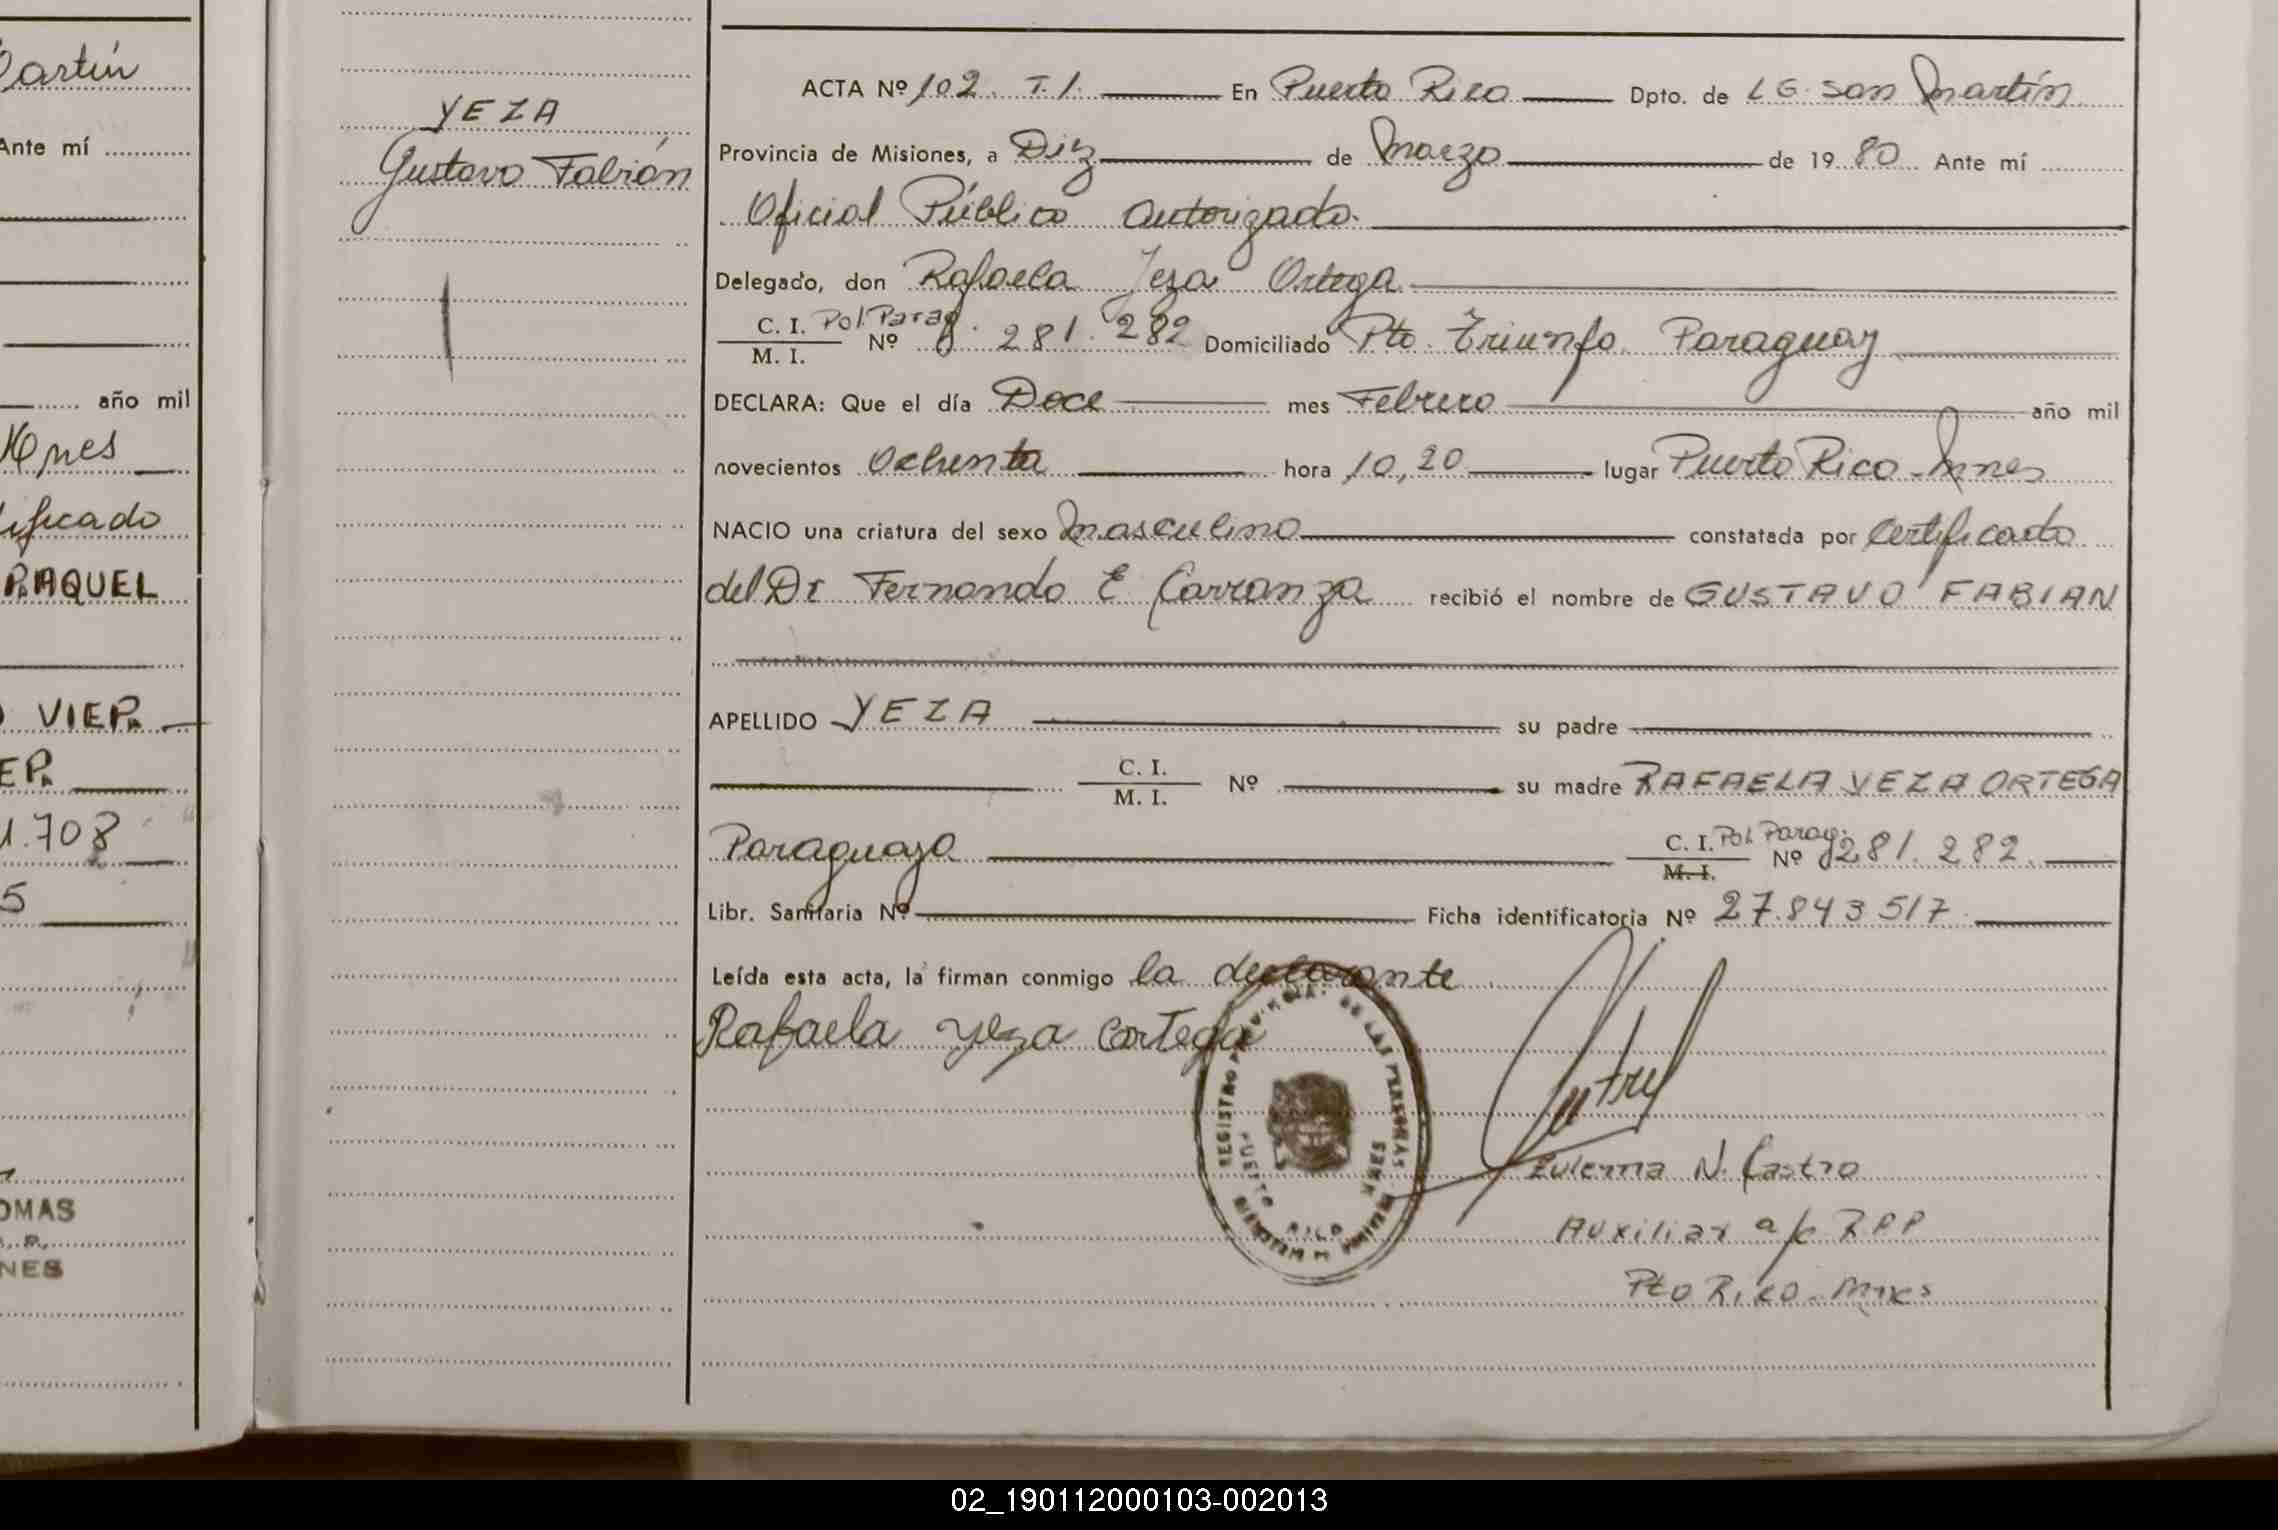 artín
Ante mí
año mil
Mnes
ificado
RAQUEL
VIERA
ERA
1.708
5
OMAS
NES
YEZA
Gustavo Fabián
ACTA Nº 102. T.1. En Puerto Rico Dpto. de L G. San Martín
Provincia de Misiones, a Diez de Marzo de 19 80 Ante mí
Oficial Público Autorizado.
Delegado, don Rafaela Yeza Ortega
C. I. Pol. Parag.
M. I. Nº 281.282 Domiciliado Pto. Triunfo. Paraguay
DECLARA: Que el día Doce mes Febrero año mil
novecientos Ochenta hora 10,20 lugar Puerto Rico - Mnes
NACIO una criatura del sexo Masculino constatada por Certificado
del Dr Fernando E Carranza recibió el nombre de GUSTAVO FABIAN
APELLIDO YEZA su padre
C. I.
M. I. Nº su madre RAFAELA YEZA ORTEGA
Paraguaya C. I. Pol. Parag.
M. I. Nº 281.282.
Libr. Sanitaria Nº Ficha identificatoria Nº 27.843517
Leída esta acta, la firman conmigo la declarante
Rafaela yeza ortega
REGISTRO PROVINCIAL DE LAS PERSONAS
PUERTO RICO
Zulema N. Castro
Auxiliar a/c RPP
Pto Rico - Mnes
02_190112000103-002013